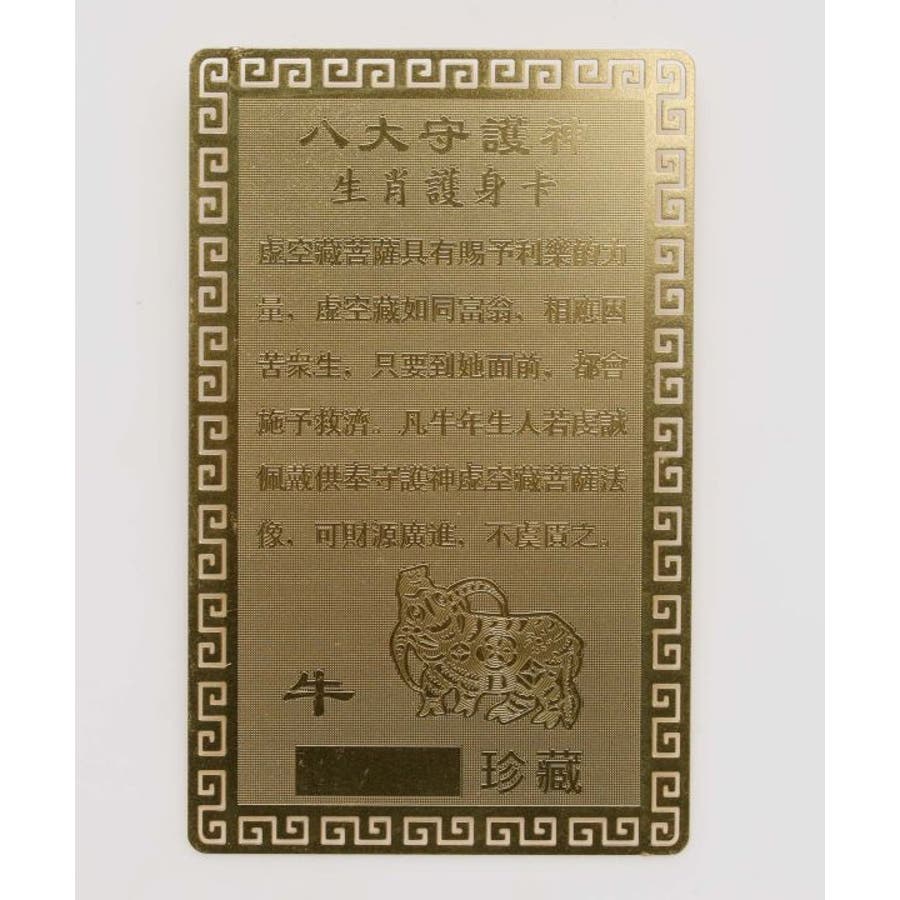 八大守護神
生肖護身卡
虛空藏菩薩具有賜予利樂的力
量，虛空藏如同富翁，相應困
苦衆生，只要到她面前，都會
施予救濟。凡牛年生人若虔誠
佩戴供奉守護神虛空藏菩薩法
像，可財源廣進，不虞匱之。
牛
珍藏